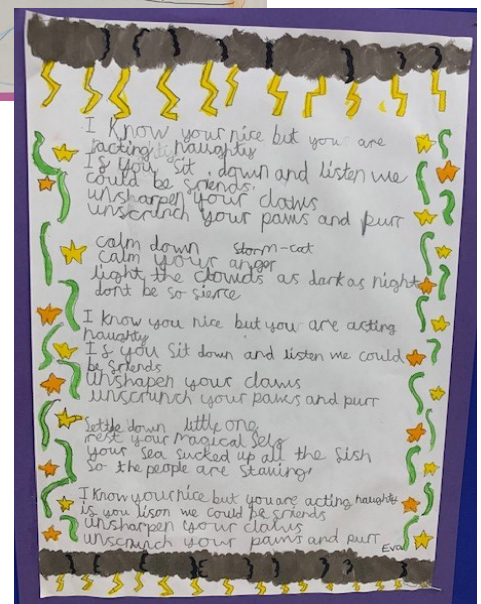 I Know your nice but you are
acting naughty
If you sit down and listen we
could be friends.
unsharpen your claws
unscrunch your paws and purr
calm down storm-cat
calm your anger
light the clouds as dark as night
dont be so fierce
I know you nice but you are acting
naughty
If you sit down and listen we could
be friends
unshapen your claws
unscrunch your paws and purr
Settle down little one
rest your magical self
your sea sucked up all the fish
so the people are staving!
I know your nice but you are acting naughty
if you lison we could be friends
unsharpen your claws
unscrunch your paws and purr
Eva